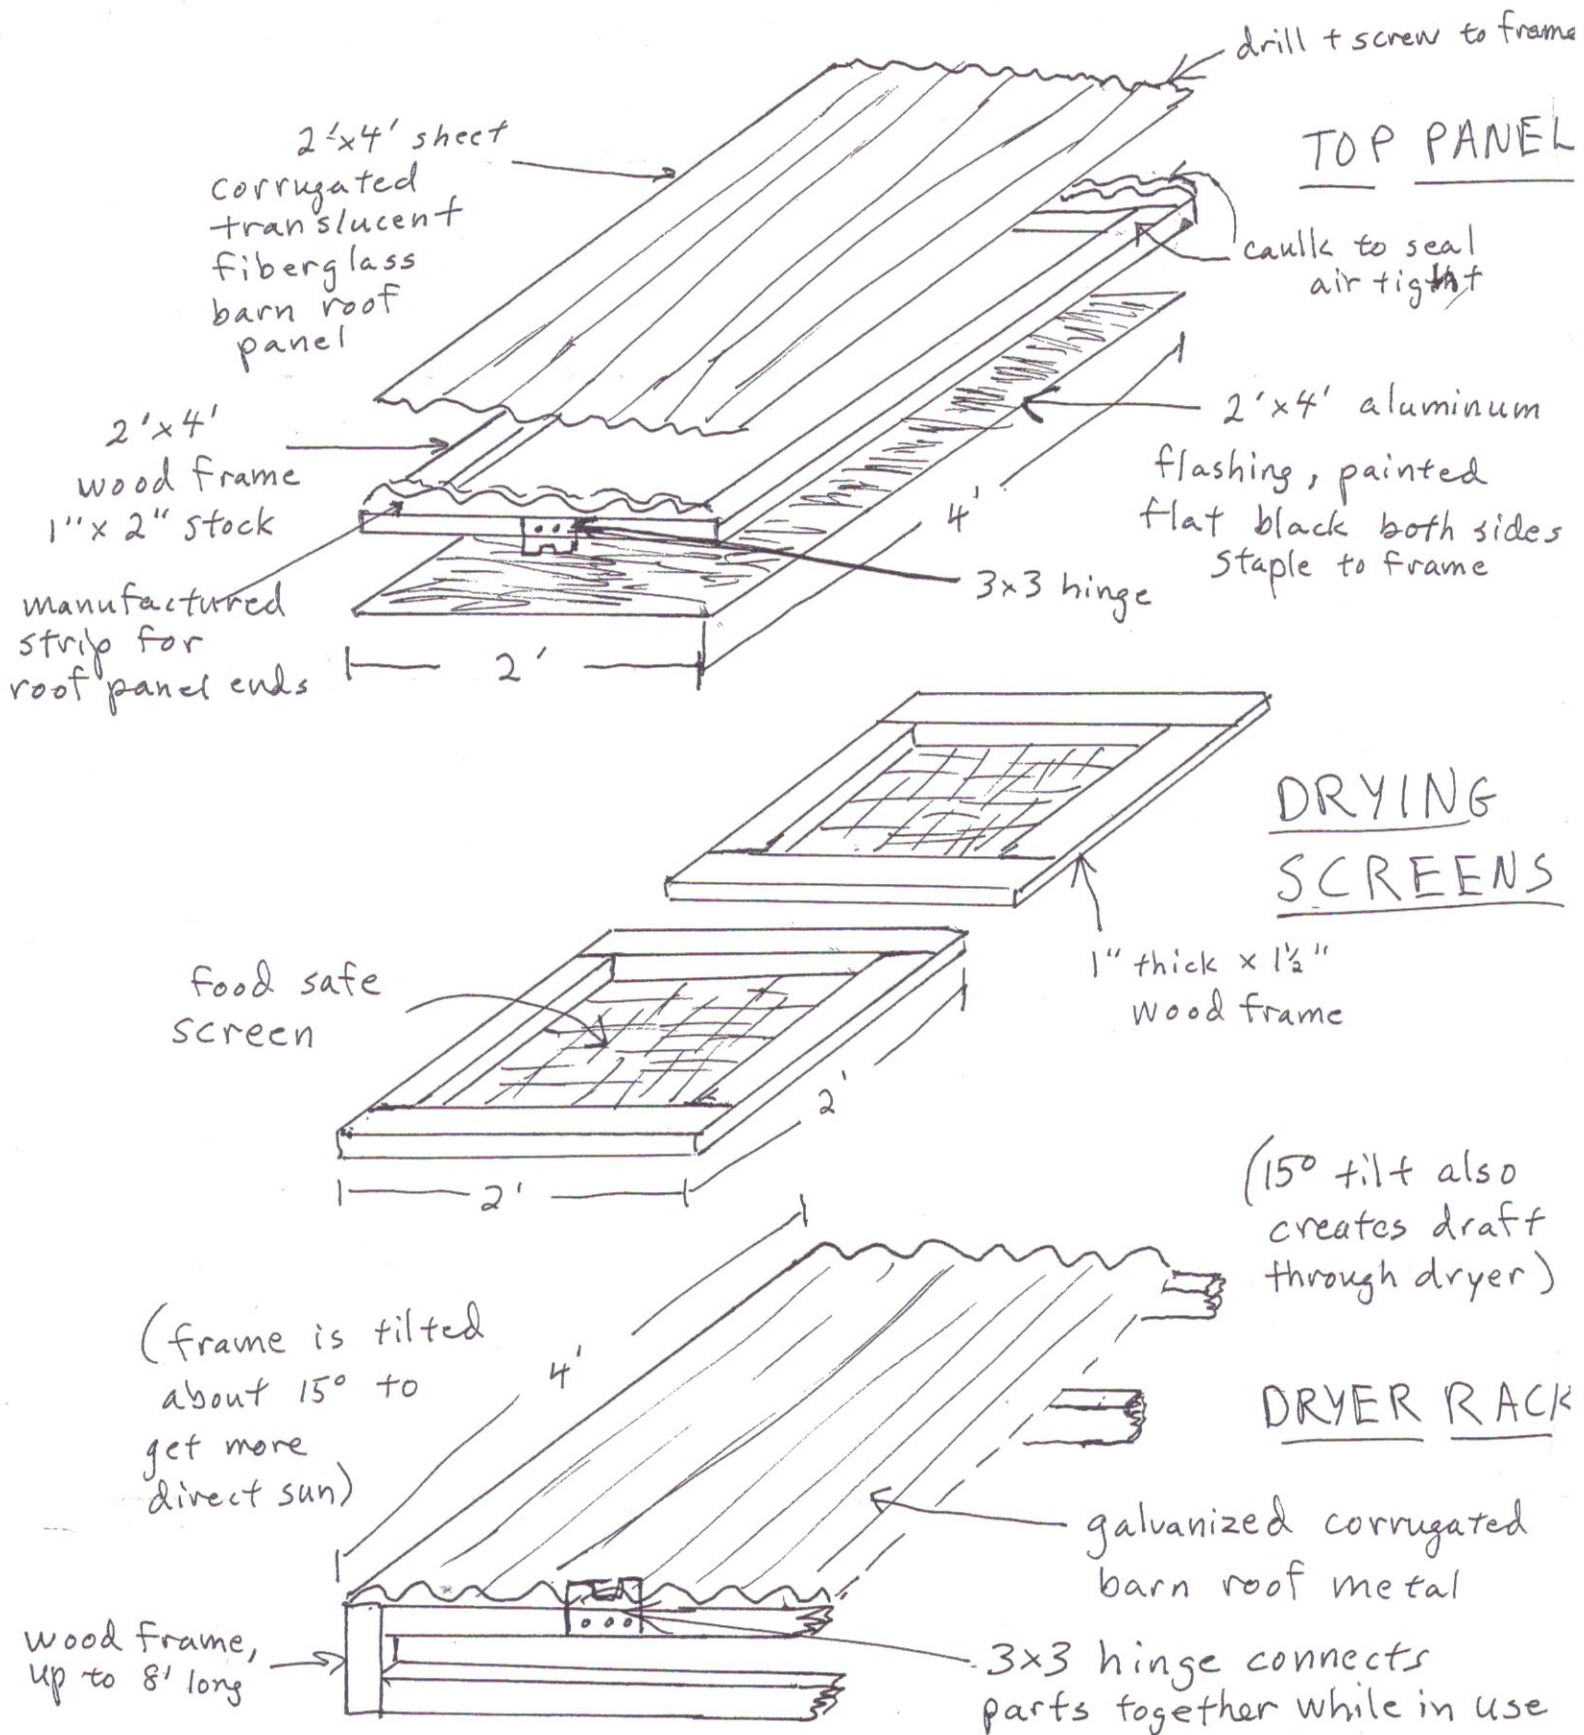 drill + screw to frame
TOP PANEL
2'x4' sheet
corrugated
translucent
fiberglass
barn roof
panel
caulk to seal
air tight
2'x4'
wood frame
1"x 2" stock
2'x4' aluminum
flashing, painted
flat black both sides
staple to frame
4'
3x3 hinge
manufactured
strip for
roof panel ends
2'
DRYING
SCREENS
1" thick x 1½"
wood frame
food safe
screen
2'
2'
(15° tilt also
creates draft
through dryer)
(frame is tilted
about 15° to
get more
direct sun)
4'
DRYER RACK
galvanized corrugated
barn roof metal
wood frame,
up to 8' long
3x3 hinge connects
parts together while in use